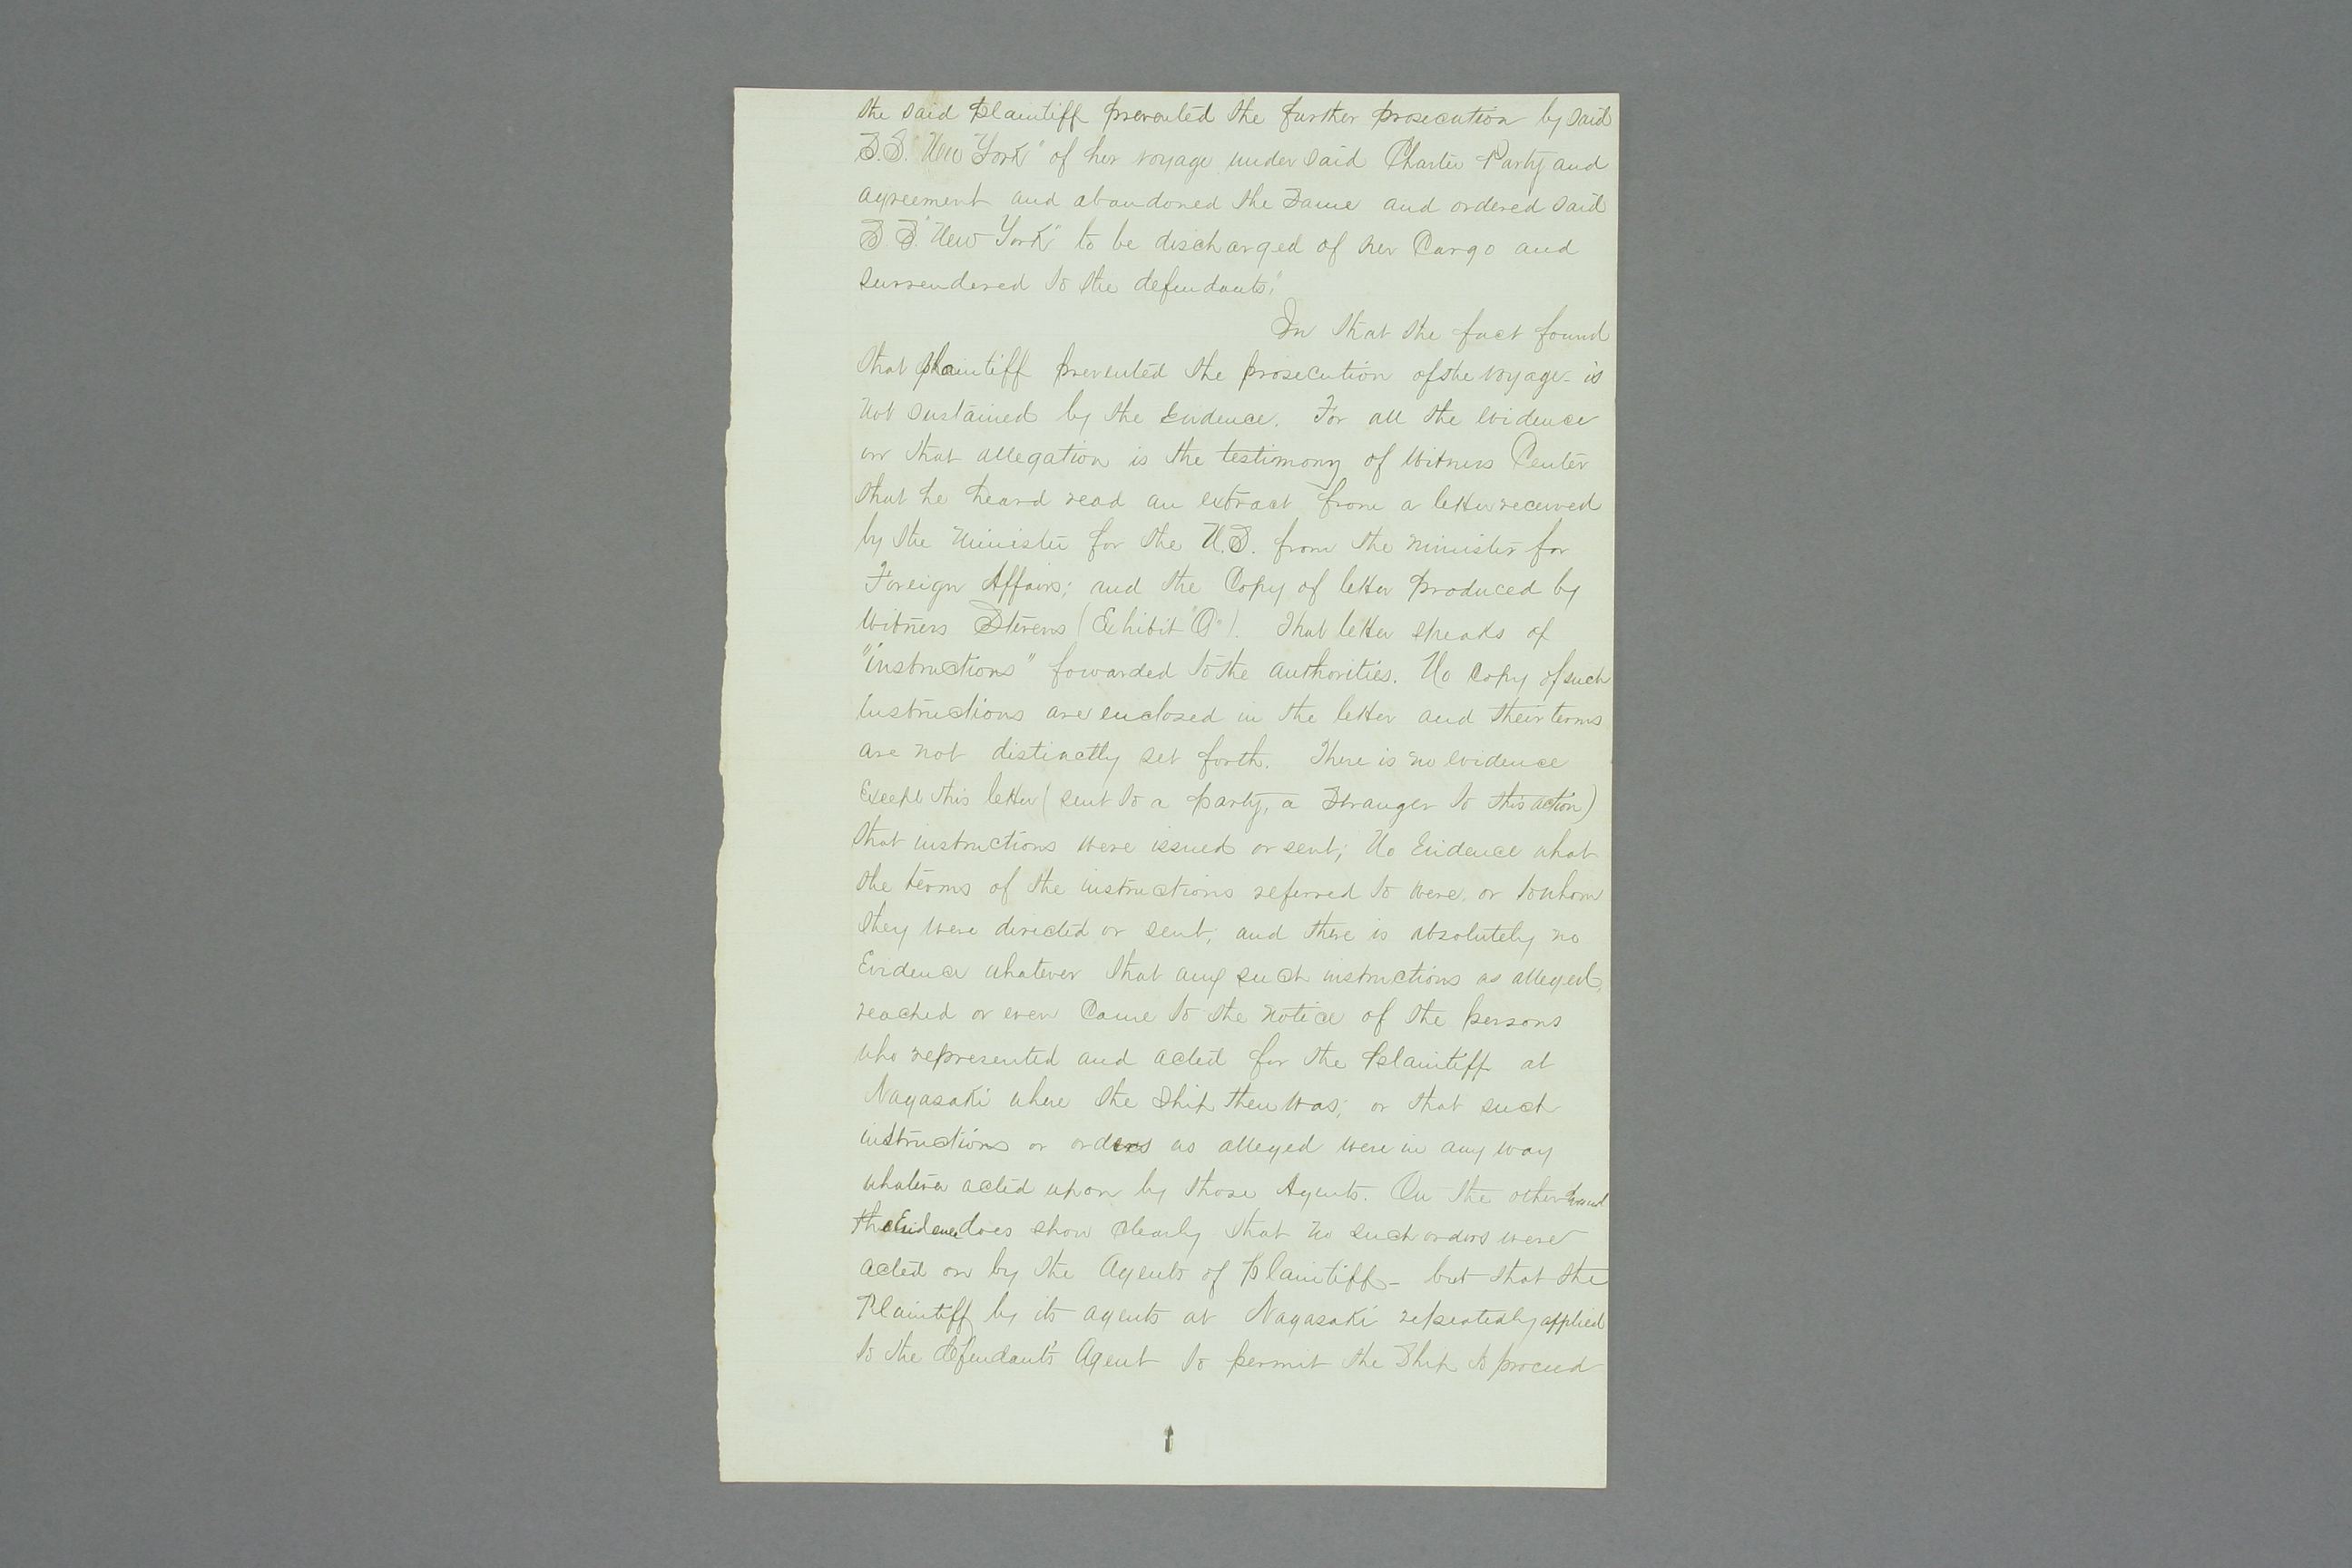 the said plaintiff prevented the further prosecution by said
S.S. "New York" of her voyage under said Charter Party and
agreement and abandoned the same and ordered said
S.S. "New York" to be discharged of her Cargo and
surrendered to the defendants."
In that the fact found
that plaintiff prevented the prosecution of the voyage is
not sustained by the evidence. For all the evidence
on that allegation is the testimony of Witness Center
that he heard read an extract from a letter received
by the Minister for the U.S. from the Minister for
Foreign Affairs; and the Copy of letter produced by
Witness Stevens (Exhibit "O"). That letter speaks of
"instructions" fowarded to the authorities. No Copy of such
instructions are enclosed in the letter and their terms
are not distinctly set forth. There is no evidence
Except this letter (sent to a party, a Stranger to this action)
that instructions were issued or sent; No Evidence what
the terms of the instructions referred to were, or to whom
they were directed or sent; and there is absolutely no
Evidence whatever that any such instructions as alleged,
reached or even Came to the notice of the persons
who represented and acted for the plaintiff at
Nagasaki where the Ship then was; or that such
instructions or orders as alleged were in any way
whatever acted upon by those Agents. On the other hand
the Evidence does show Clearly that no such orders were
acted on by the Agents of plaintiff - but that the
Plaintiff by its agents at Nagasaki repeatedly applied
to the defendant's Agent to permit the Ship to proceed